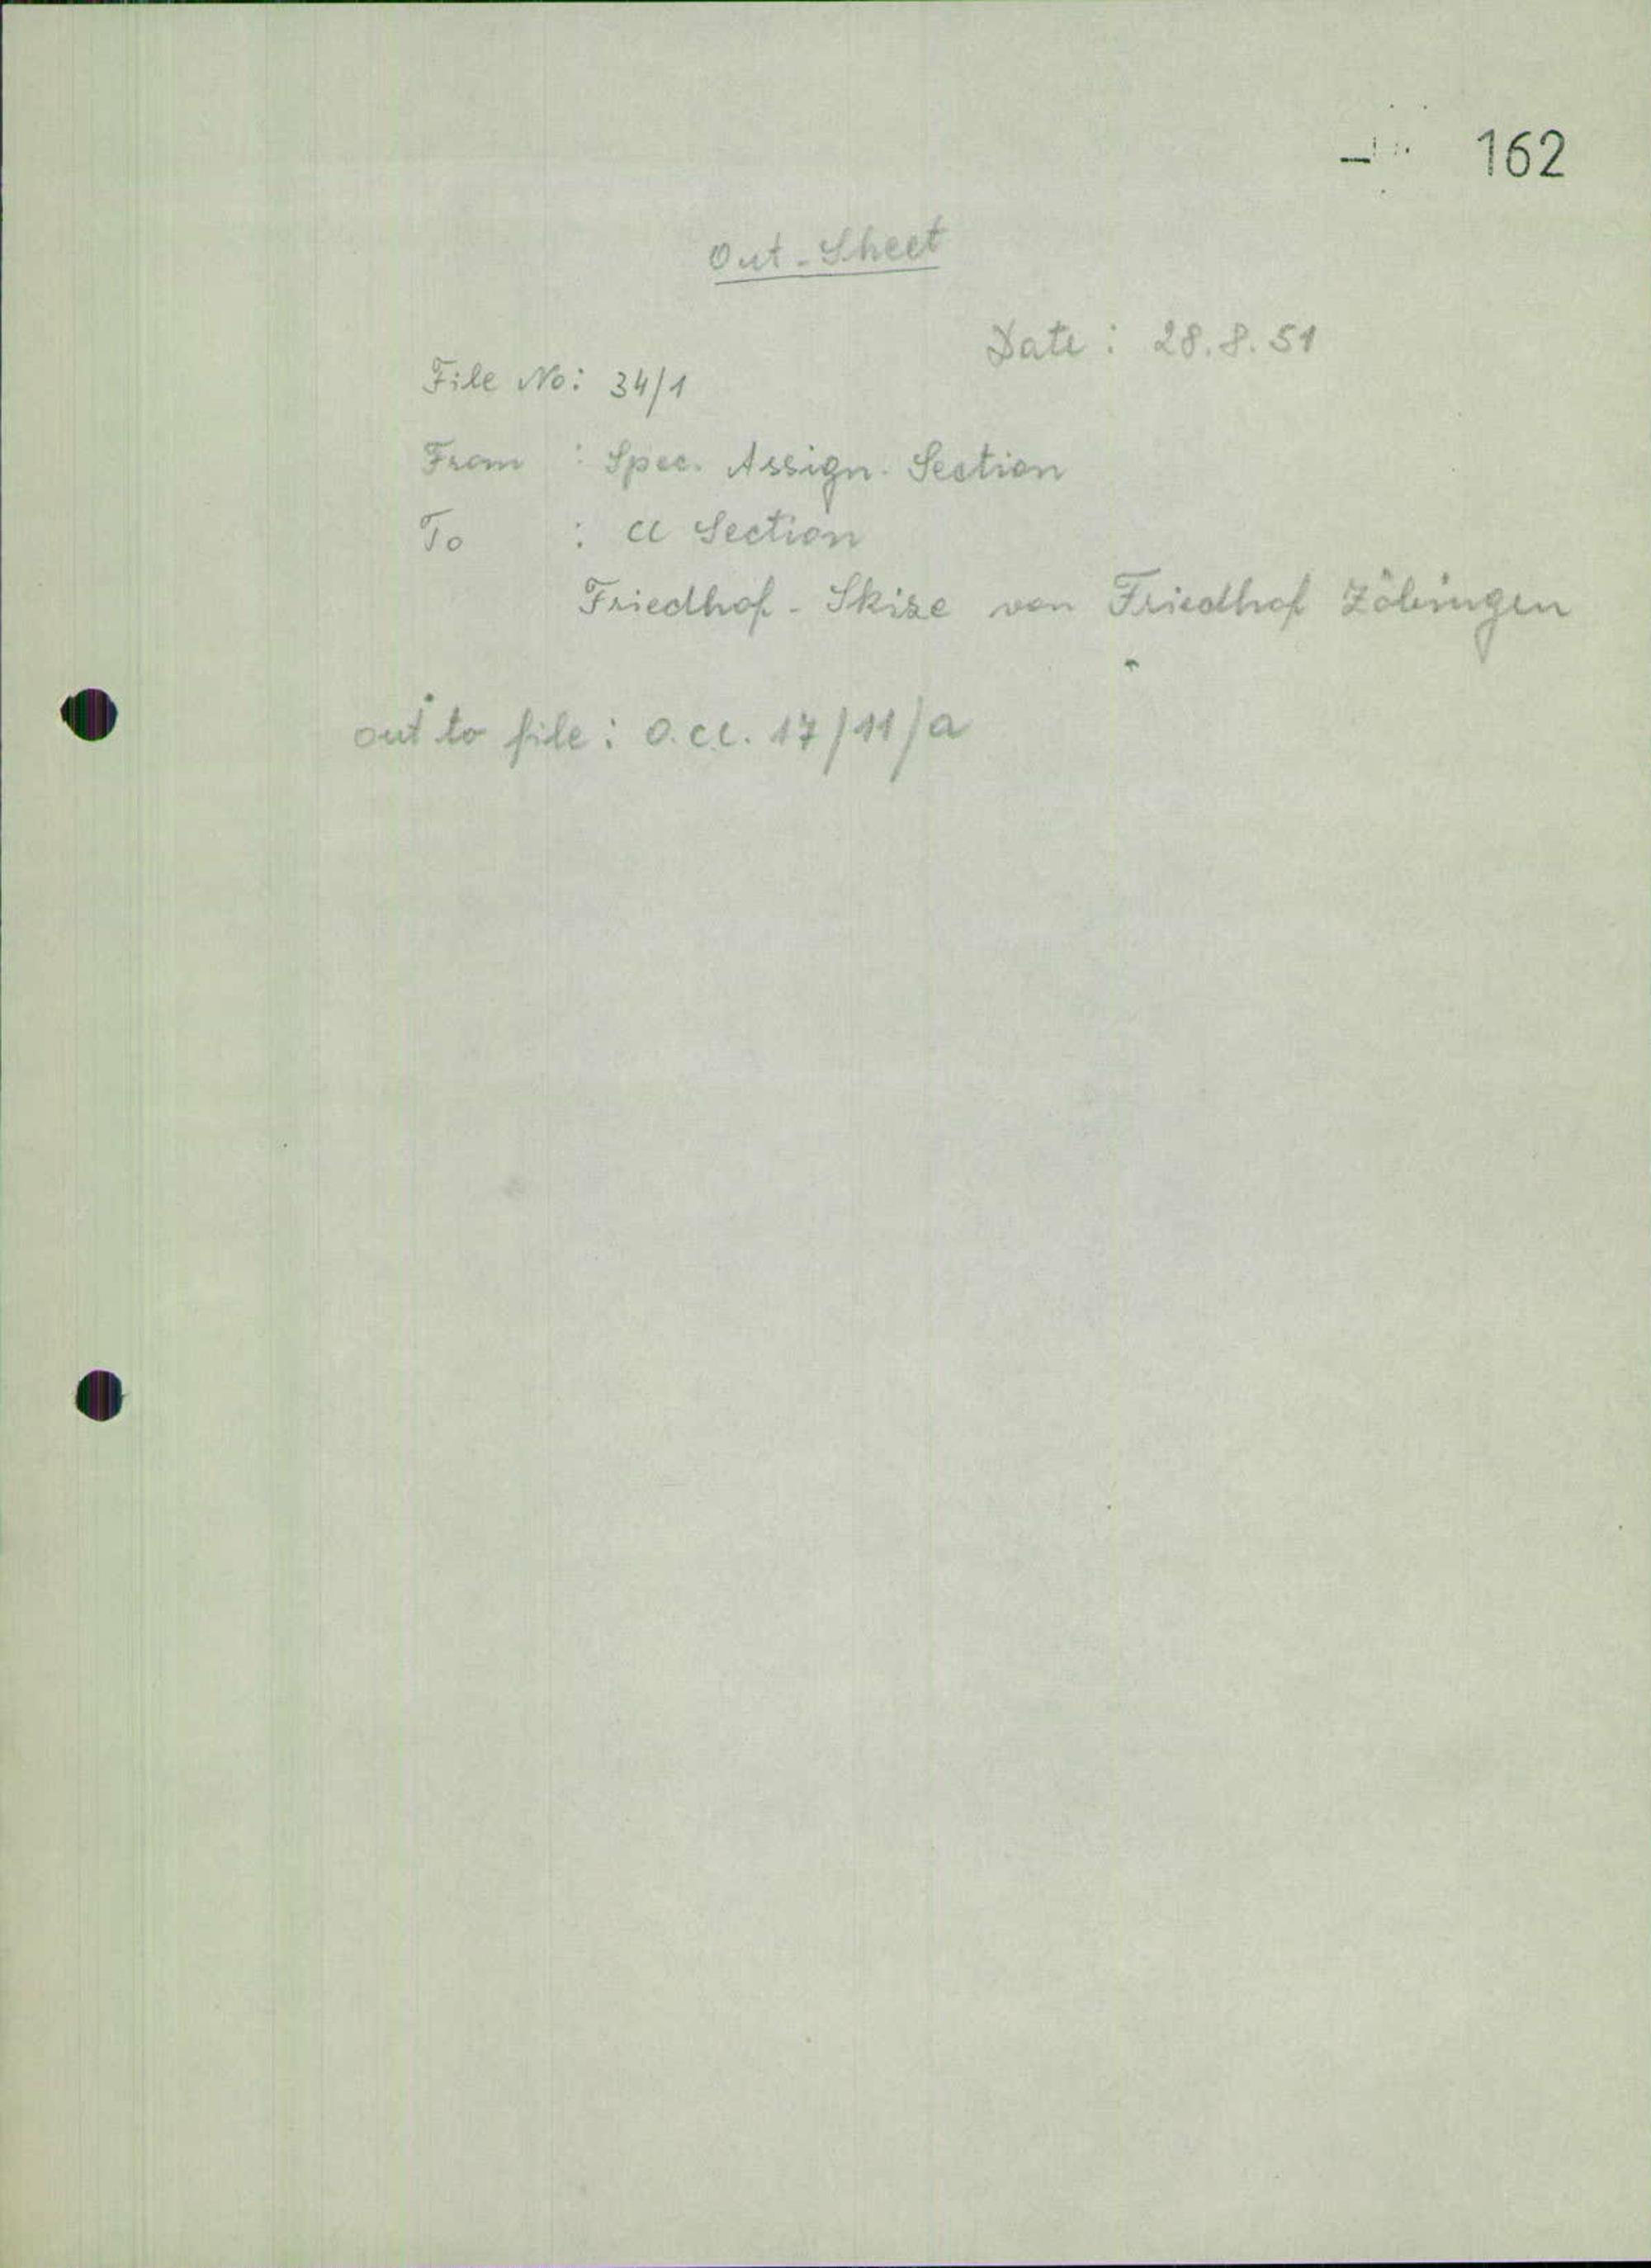 162
Out-Sheet
Date: 28.8.51
File No: 34/1
From : Spec. Assign. Section
To : CC Section
Friedhof-Skize von Friedhof Zöbingen
out to file: O.CC. 17/11/a